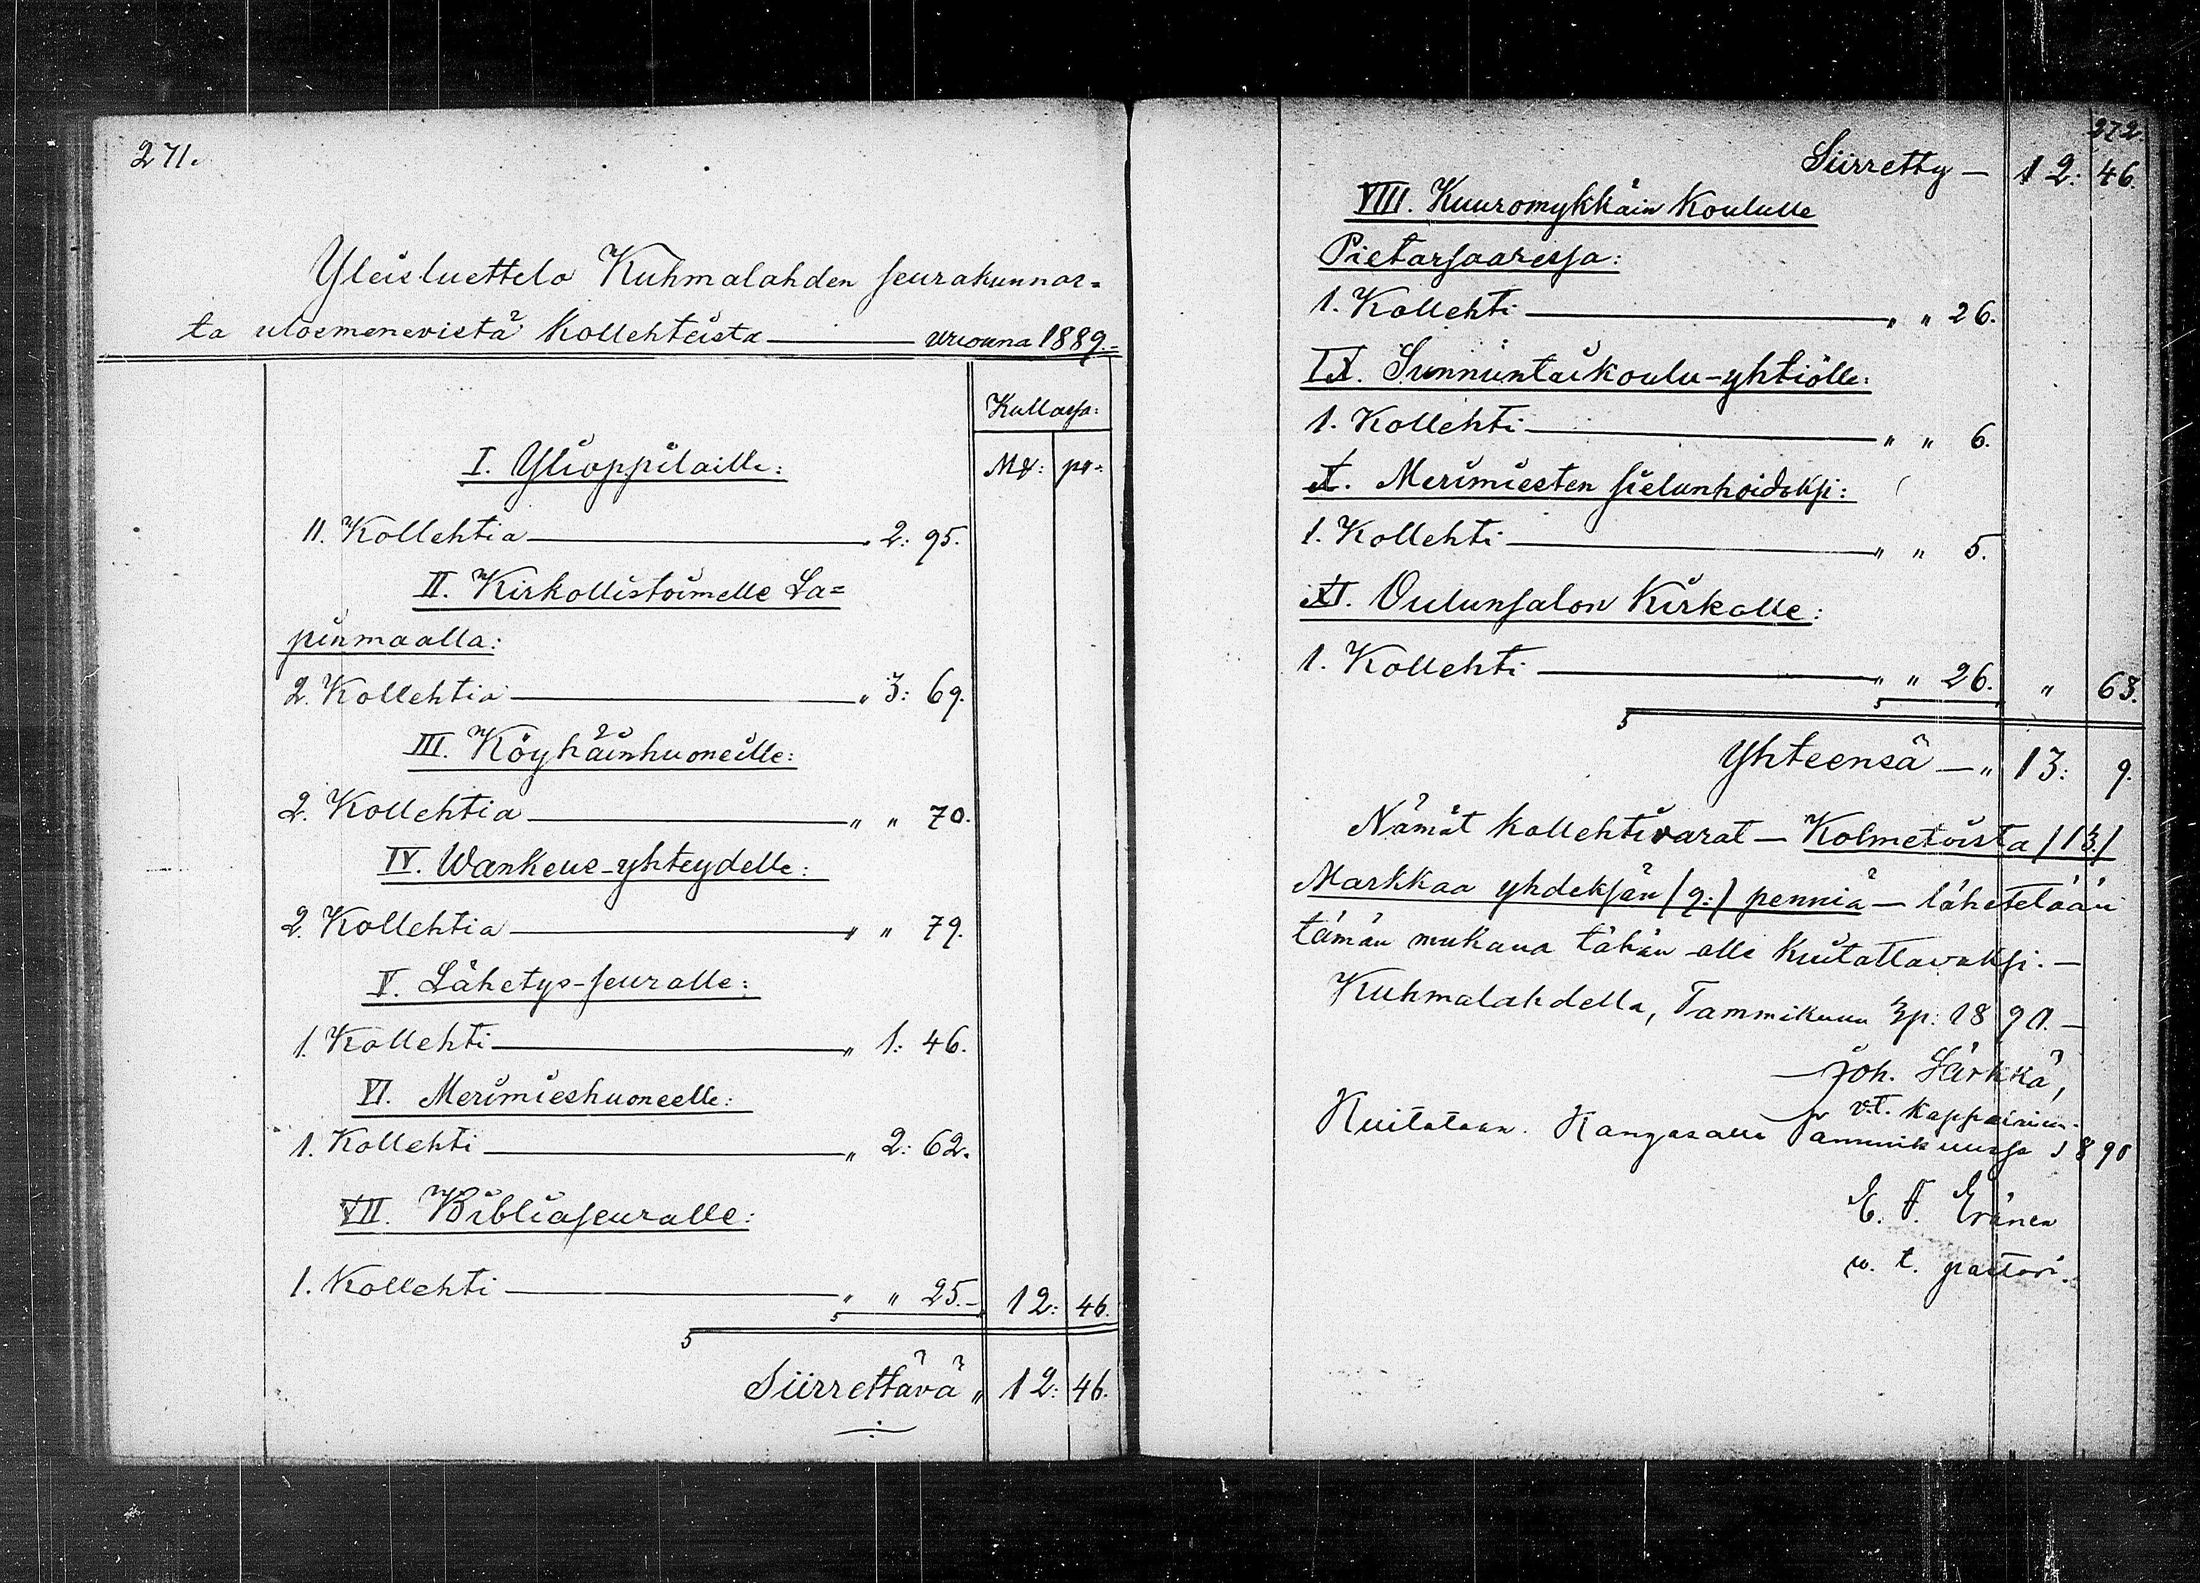 271.
Yleisluettelo Kuhmalahden seurakunnas=
ta ulosmenevistä Kollehteista — vuonna 1889.=
Kullassa:
Mk: pi=
I. Ylioppilaille:
11. Kollehtia — 2: 95.
II. Kirkollistoimelle La=
pinmaalla:
2. Kollehtia — " 3: 69.
III. Köyhäinhuoneille:
2. Kollehtia — " " 70.
IV. Wankeus-yhteydelle:
2. Kollehtia — " " 79.
V. Lähetys-seuralle:
1. Kollehti — " 1: 46.
VI. Merimieshuoneelle:
1. Kollehti — " 2: 62.
VII. Bibliaseuralle:
1. Kollehti — " " 25.- 12: 46.
Siirrettävä " 12: 46.
272.
Siirretty — 12: 46.
VIII. Kuuromykkäin Koululle
Pietarsaaressa:
1. Kollehti — " " 26.
IX. Sunnuntaikoulu-yhtiölle:
1. Kollehti — " " 6.
X. Merimiesten sielunhoidoksi:
1. Kollehti — " " 5.
XI. Oulunsalon Kirkolle:
1. Kollehti — " " 26. " 63.
Yhteensä — " 13: 9.
Nämät kollehtivarat — Kolmetoista /13/
Markkaa yhdeksän /9:/ penniä — lähetetään
tämän mukana tähän alle kuitattavaksi. —
Kuhmalahdella, Tammikuun 3p: 1890. —
Joh. Särkkä,
v.t. Kappalainen.
Kuitataan. Kangasalla Tammikuussa 1890
E. F. Eränen
w. t. pastori.